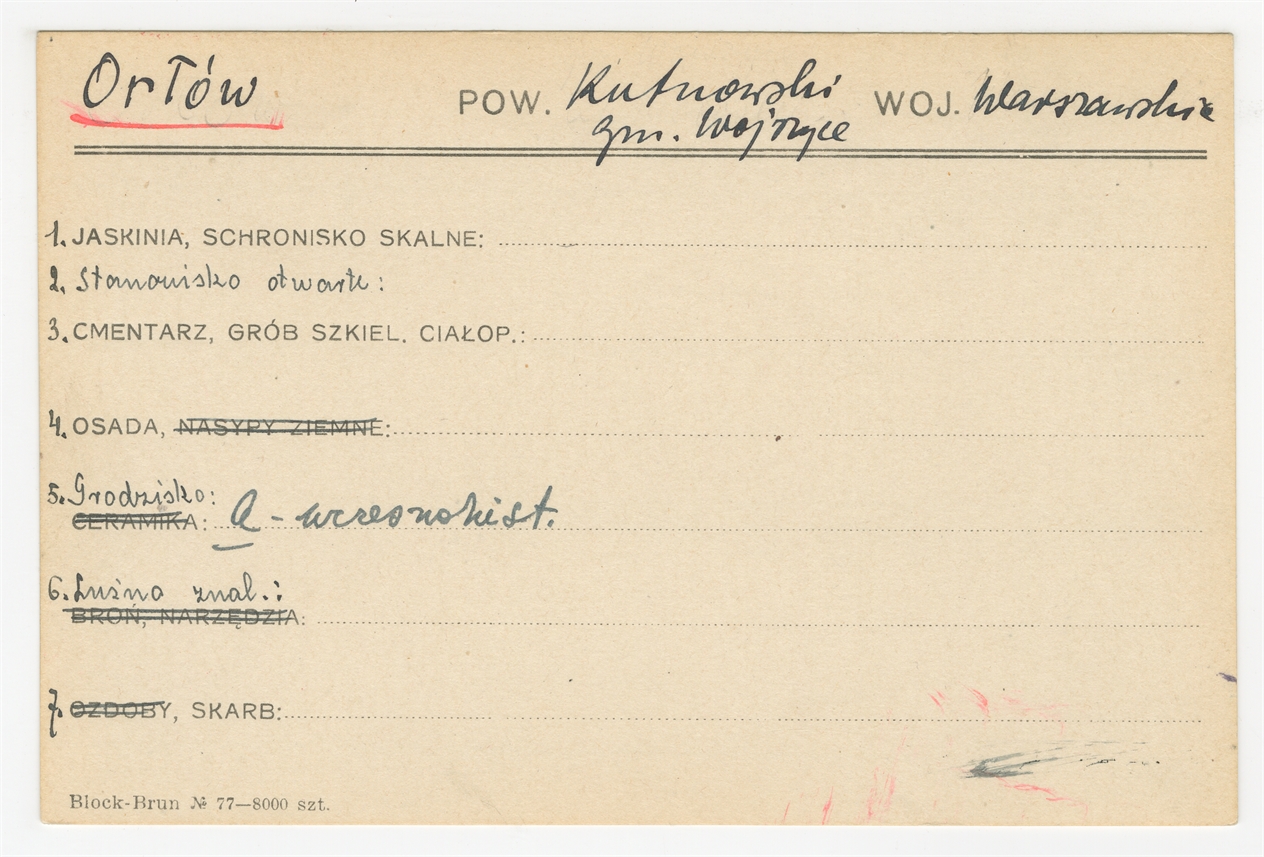 Orłów POW. Kutnowski WOJ. Warszawskie
gm. Wojszyce
1. JASKINIA, SCHRONISKO SKALNE:
2. Stanowisko otwarte:
3. CMENTARZ, GRÓB SZKIEL. CIAŁOP.:
4. OSADA, NASYPY ZIEMNE:
5. Grodzisko:
CERAMIKA: a - wczesnohist.
6. Luźno znal.:
BROŃ, NARZĘDZIA:
7. OZDOBY, SKARB:
Block-Brun № 77—8000 szt.